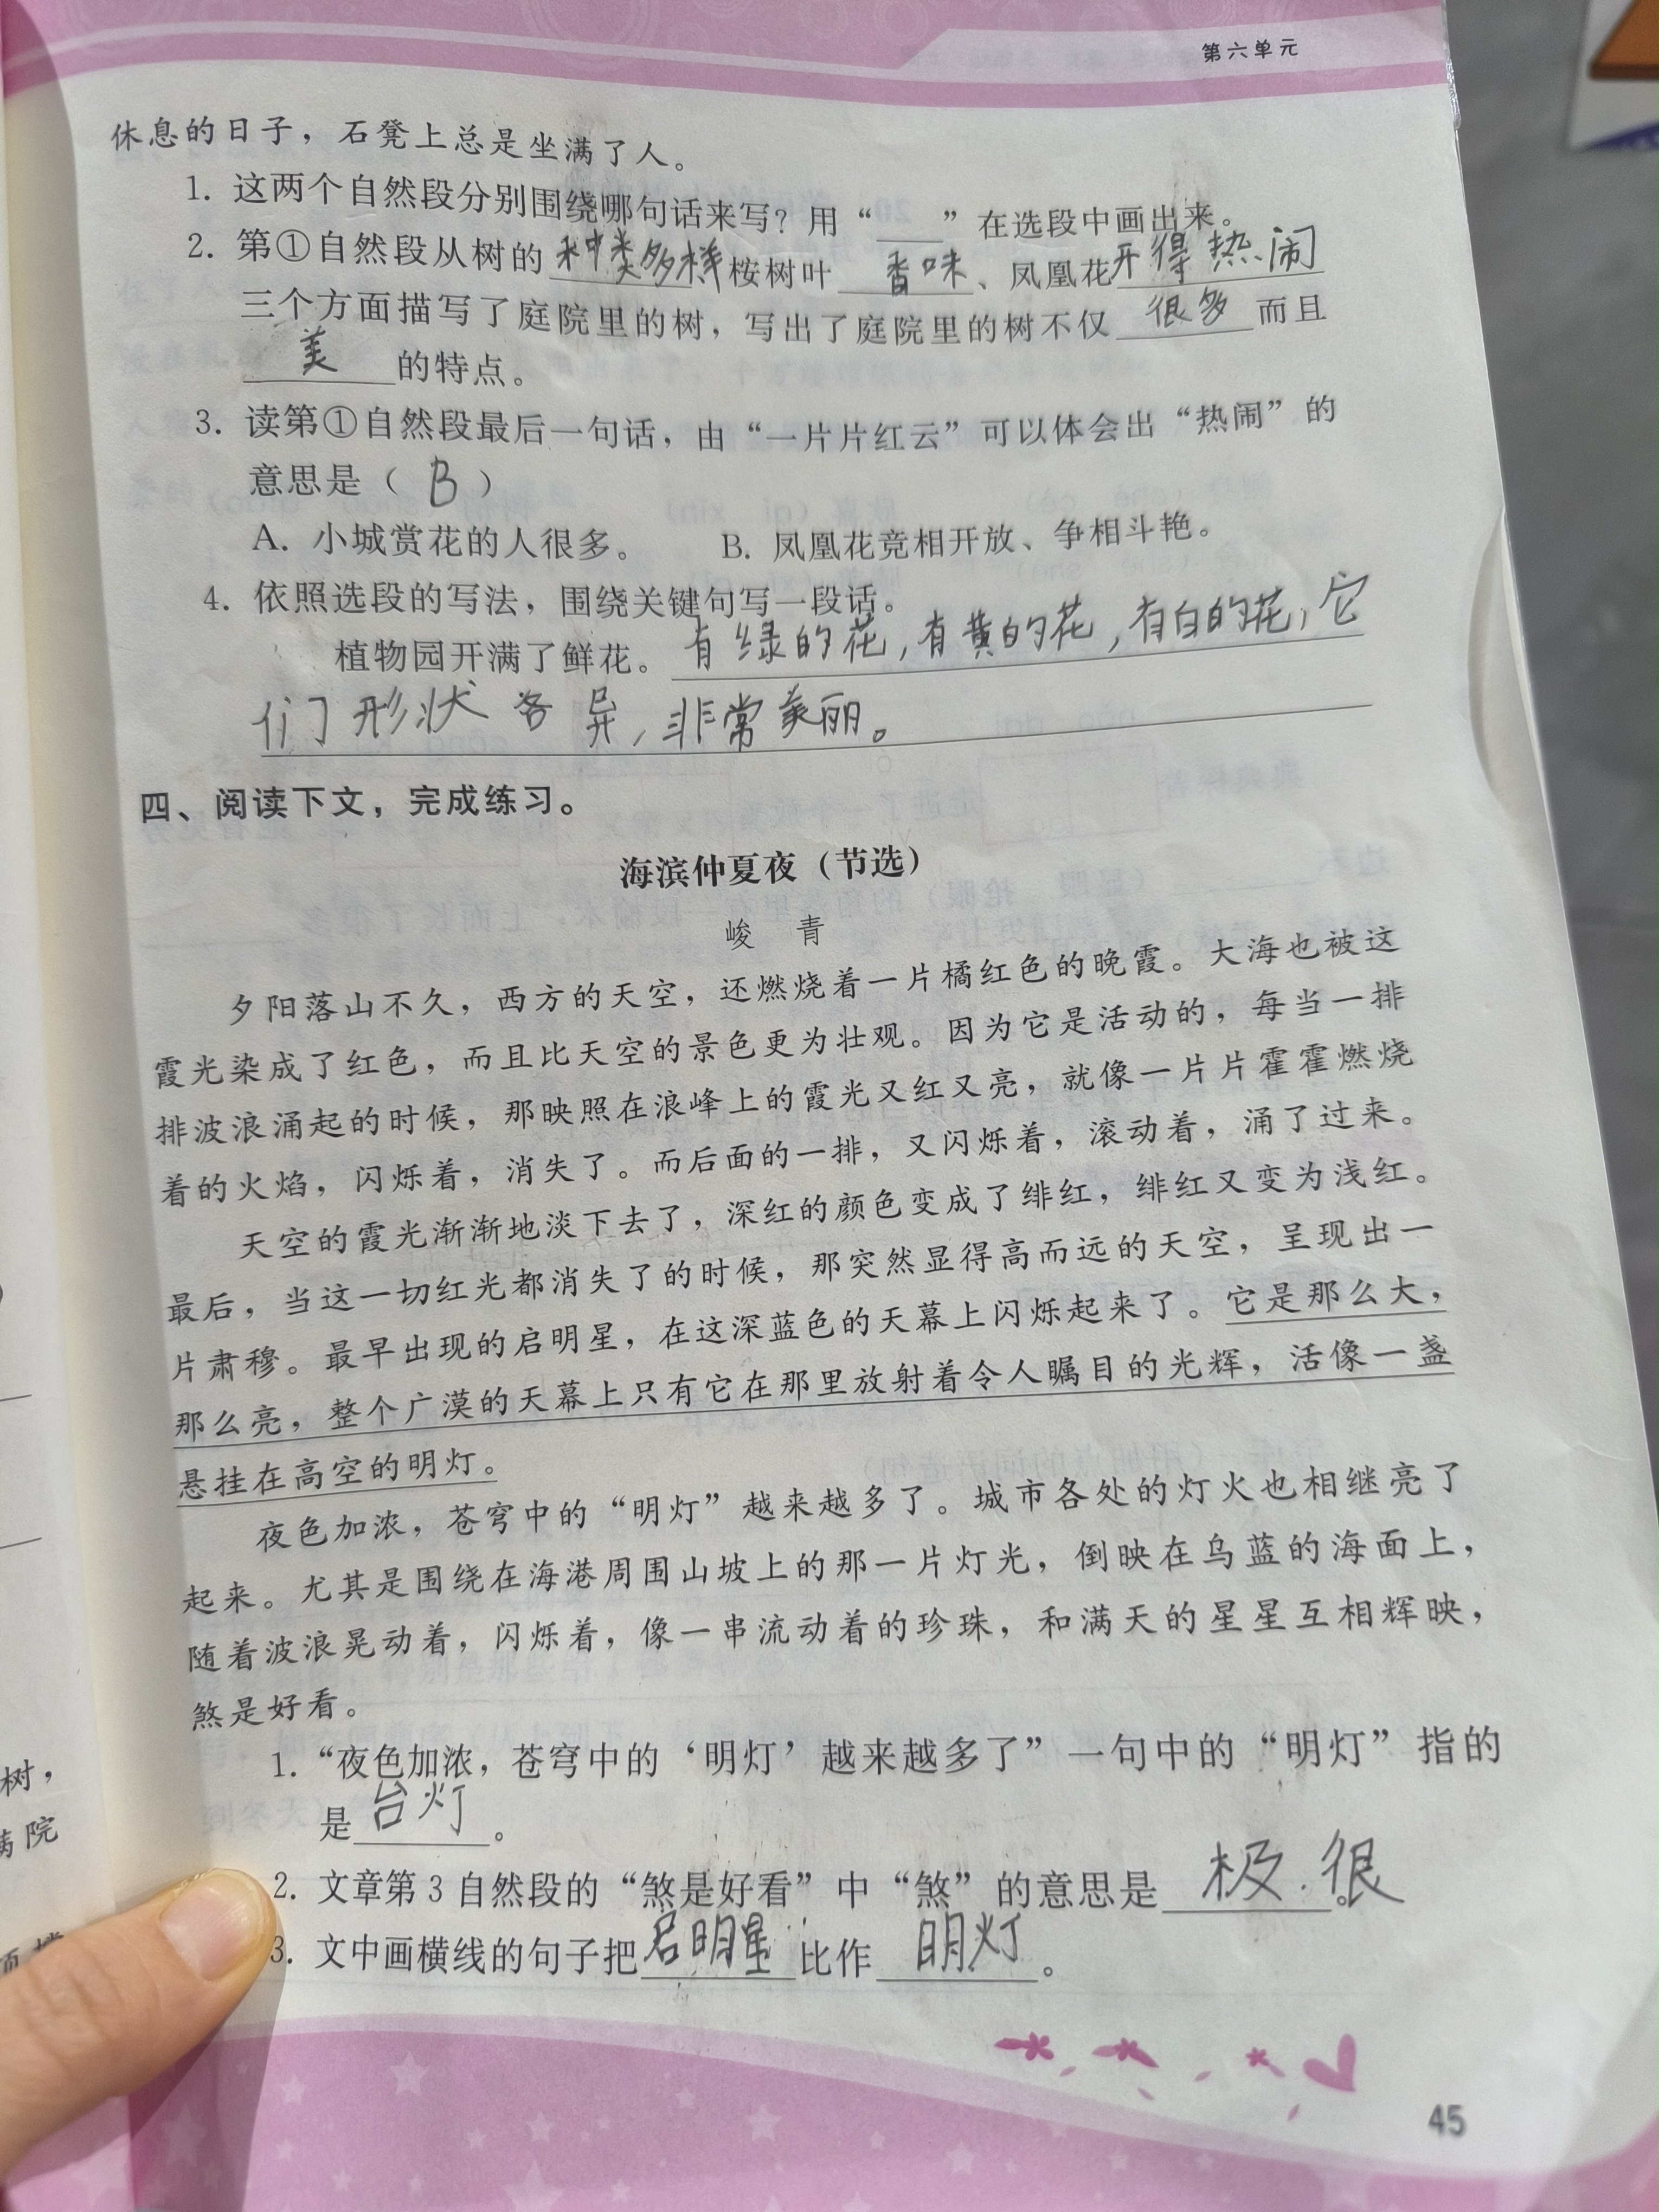 第六单元
休息的日子，石凳上总是坐满了人。
1. 这两个自然段分别围绕哪句话来写？用“___”在选段中画出来。
2. 第①自然段从树的种类多样桉树叶香味、凤凰花开得热闹
三个方面描写了庭院里的树，写出了庭院里的树不仅很多而且
美的特点。
3. 读第①自然段最后一句话，由“一片片红云”可以体会出“热闹”的
意思是（B）
A. 小城赏花的人很多。 B. 凤凰花竞相开放、争相斗艳。
4. 依照选段的写法，围绕关键句写一段话。
植物园开满了鲜花。有绿的花，有黄的花，有白的花，它
们形状各异，非常美丽。
四、阅读下文，完成练习。
海滨仲夏夜（节选）
峻 青
夕阳落山不久，西方的天空，还燃烧着一片橘红色的晚霞。大海也被这
霞光染成了红色，而且比天空的景色更为壮观。因为它是活动的，每当一排
排波浪涌起的时候，那映照在浪峰上的霞光又红又亮，就像一片片霍霍燃烧
着的火焰，闪烁着，消失了。而后面的一排，又闪烁着，滚动着，涌了过来。
天空的霞光渐渐地淡下去了，深红的颜色变成了绯红，绯红又变为浅红。
最后，当这一切红光都消失了的时候，那突然显得高而远的天空，呈现出一
片肃穆。最早出现的启明星，在这深蓝色的天幕上闪烁起来了。它是那么大，
那么亮，整个广漠的天幕上只有它在那里放射着令人瞩目的光辉，活像一盏
悬挂在高空的明灯。
夜色加浓，苍穹中的“明灯”越来越多了。城市各处的灯火也相继亮了
起来。尤其是围绕在海港周围山坡上的那一片灯光，倒映在乌蓝的海面上，
随着波浪晃动着，闪烁着，像一串流动着的珍珠，和满天的星星互相辉映，
煞是好看。
1. “夜色加浓，苍穹中的‘明灯’越来越多了”一句中的“明灯”指的
是台灯。
2. 文章第3自然段的“煞是好看”中“煞”的意思是极.很。
3. 文中画横线的句子把启明星比作明灯。
45
树，
满院